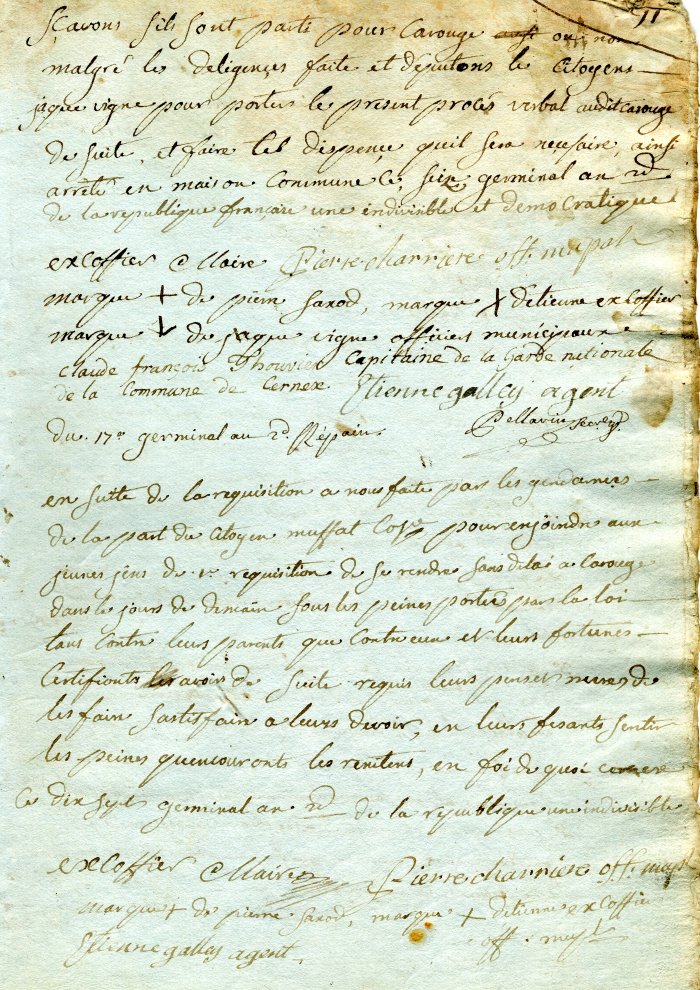 11
sçavons sils sont parti pour carouge ou non
malgré les deligences faite et deputons le Citoyens
jaque vigne pour porter le present procés verbal audit carouge
de suite, et faire les dispence quil sera necesaire, ainsi
arrêté en maison Commune ce, seize germinal an 2d
de la republique française une indivisible et democratique
excoffier Maire Pierre charriere off. mupal
marque + de pierre saxod, marque + detienne excoffier
marque + de jaque vigne officiers municipaux
claude françois Thouvier Capitaine de la Garde nationale
de la Commune de Cernex Etienne galley agent
du 17e germinal an 2d. Pellarin secre
en suite de la requisition a nous faite par les gendarmes
de la part du Citoyen muffat pour enjoindre aux
jeunes jens de 1re requisition de se rendre sans delai a Carouge
dans le jours de demain sous les peines porté par la loi
tans contre leurs parents que contre eux et leurs fortunes
Certifionts les avoir de suite requis leurs perset meres de
les fair sastisfair a leurs devoir, en leurs fesants sentir
les peines quencouronts les renitens, en foi de quoi cernex
Ce dix sept germinal an 2d de la republique une indivisible
excoffier Maire Pierre charriere off. mup
marque + de pierre saxod, marque + detienne excoffie
Etienne galley agent. off. mup